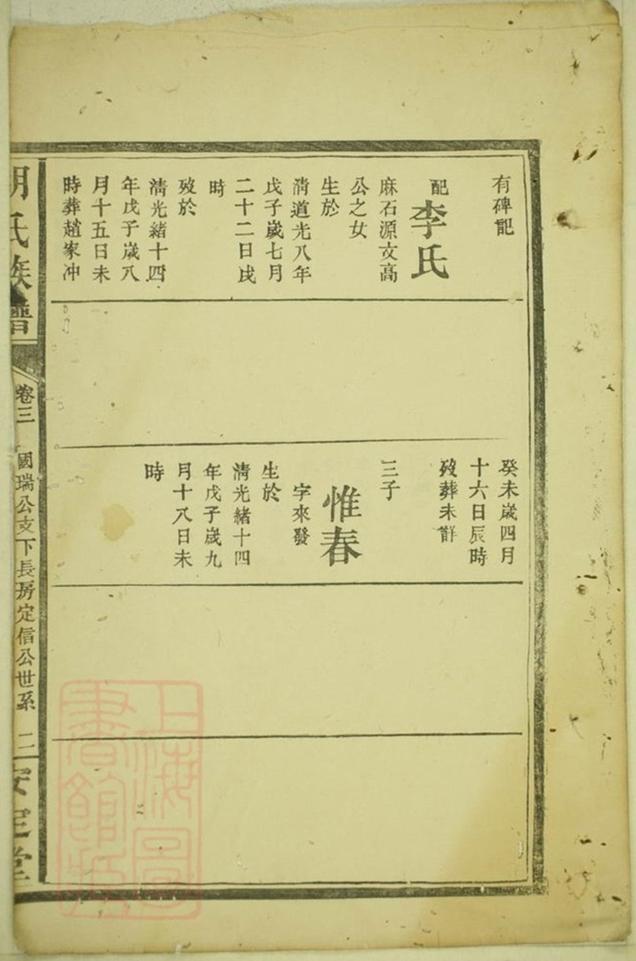 有碑記
配李氏
麻石源文高
公之女
生於
清道光八年
戊子歲七月
二十二日戌
時
歿於
清光緒十四
年戊子歲八
月十五日未
時葬趙家冲
癸未歲四月
十六日辰時
歿葬未詳
三子
惟春
字來發
生於
清光緒十四
年戊子歲九
月十八日未
時
胡氏族譜
卷三
國瑞公支下長房定信公世系
二
安定堂
上海圖書館藏